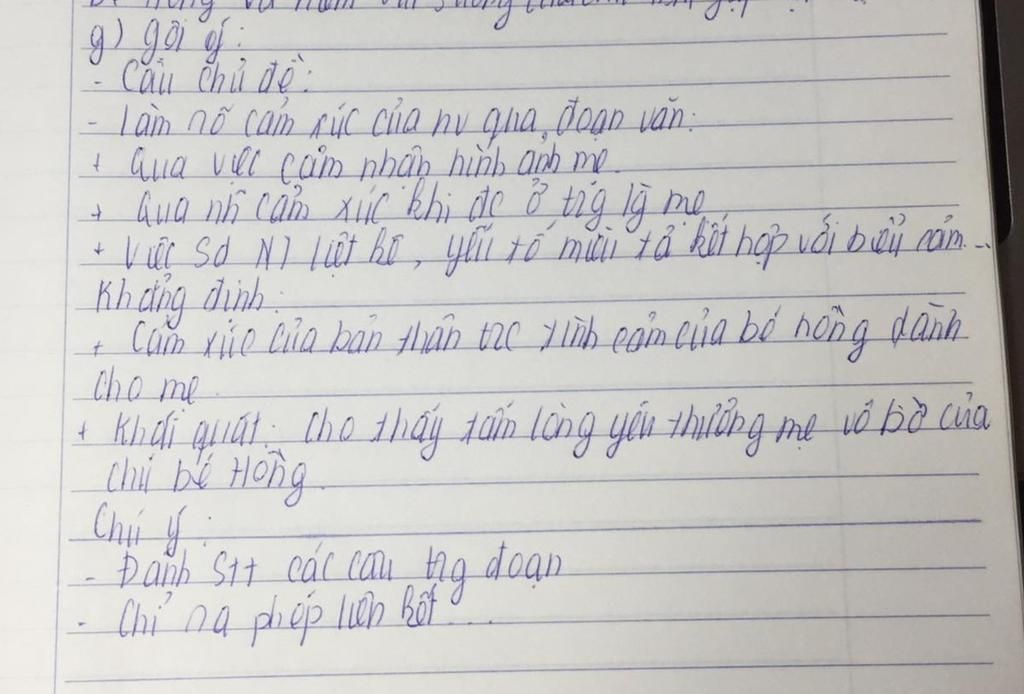 g) gợi ý:
- Câu chủ đề:
- làm rõ cảm xúc của nv qua đoạn văn:
+ Qua việc cảm nhận hình ảnh mẹ.
+ Qua nh~ cảm xúc khi đc ở trg lg mẹ
+ Việc sd NT liệt kê, yếu tố miêu tả kết hợp với biểu cảm...
Khẳng định:
+ Cảm xúc của bản thân trc tình cảm của bé hồng dành
cho mẹ.
+ Khái quát: cho thấy tấm lòng yêu thương mẹ vô bờ của
chú bé Hồng.
Chú ý:
- Đánh STT các câu trg đoạn
- Chỉ ra phép liên kết...